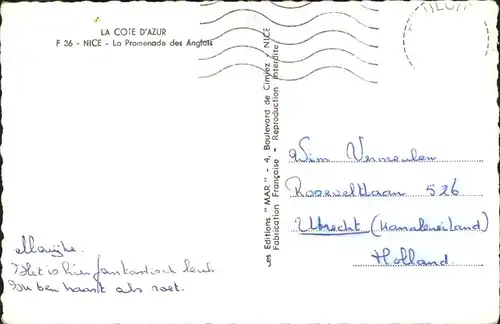 LA COTE D'AZUR
F 36 - NICE - La Promenade des Anglais
Les Editions "MAR" - 4, Boulevard de Cimiez - NICE
Fabrication Française - Reproduction interdite
Wim Vermeulen
Rooseveltlaan 526
Utrecht (Kanaleneiland)
Holland.
Marijke.
Het is hier fantastisch leuk
ben haast als roet.